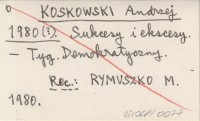 KOSKOWSKI Andrzej
1980(?). Sukcesy i ekscesy.
— Tyg. Demokratyczny.
Rec.: RYMUSZKO M.
1980.